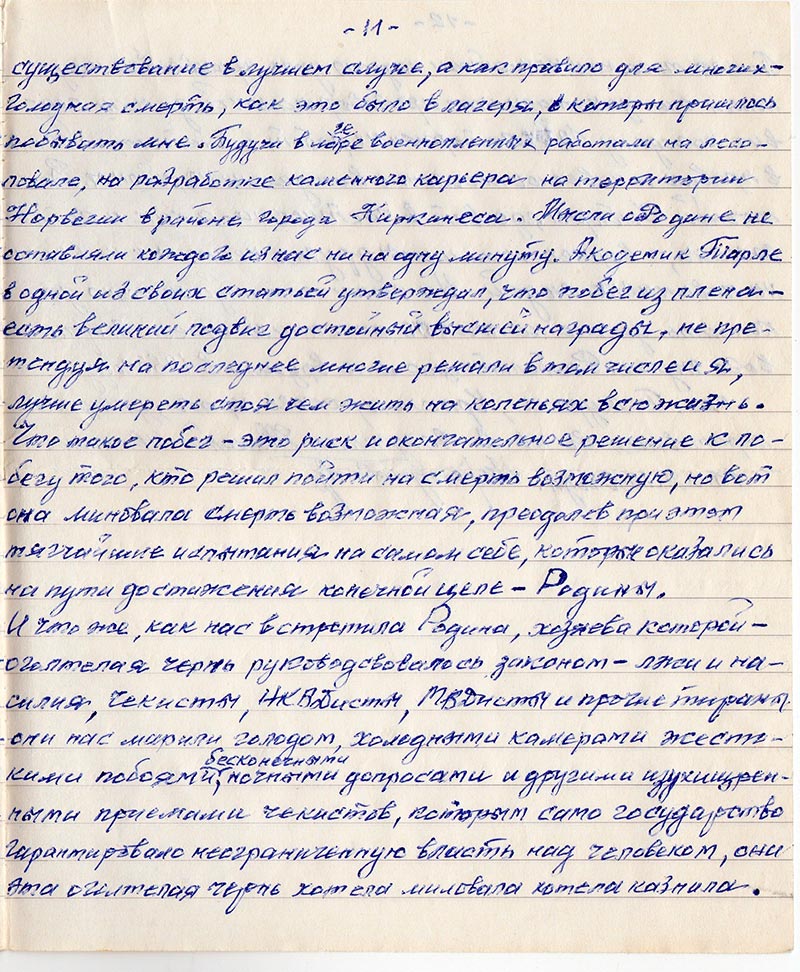 -11-
существование в лучшем случае, а как правило для многих-
голодная смерть, как это было в лагеря, в которы пришлось
побывать мне. Будучи в лагере военнопленных работали на лесо-
повале, на разработке каменного карьера на территории
Норвегии в районе города Киркинеса. Мысли о Родине не
оставляли каждого из нас ни на одну минуту. Академик Тарле
в одной из своих статьей утверждал, что побег из плена-
есть великий подвиг достойный высшей награды, не пре-
тендуя на последнее многие решали в том числе и я,
лучше умереть стоя чем жить на коленьях всю жизнь.
Что такое побег - это риск и окончательное решение к по-
бегу того, кто решал пойти на смерть возможную, но вот
она миновала смерть возможная, преодолев при этом
тягчайшие испытания на самом себе, которые оказались
на пути достижения конечной целе - Родины.
И что же, как нас встретила Родина, хозяева которой -
оголтелая чернь руководсвовалось законом - лжи и на-
силия, чекисты, НКВДисты, МВДисты и прочие тираны
они нас марили голодом, холодными камерами жесто-
кими побоями, бесконечными ночными допросами и другими изухищрен-
ными приемами чекистов, которым само государство
гарантировало неограниченную власть над человеком, они
эта оголтелая чернь хотела миловала хотела казнила.